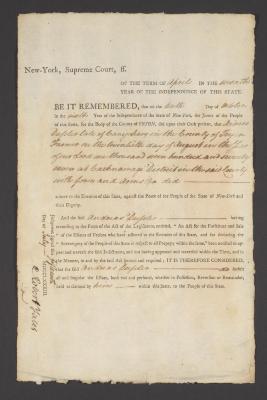 New-York, Supreme Court, ss.
OF THE TERM OF April IN THE seventh
YEAR OF THE INDEPENDENCE OF THIS STATE.
BE IT REMEMBERED, that on the sixth Day of October
In the sixth Year of the Independence of the State of New-York, the Jurors of the People
of this State, for the Body of the County of TRYON, did upon their Oath present, that Andreas
late of Canajohary in the County of Tryon
Farmer on the twentieth day of August in the Year
of our Lord one thousand seven hundred and seventy
seven at Canajoharie District in the said County
with force and Arms &c did
adhere to the Enemies of this State, against the Peace of the People of the State of New-York and
their Dignity.
And the said Andreas having
according to the Form of the Act of the Legislature, entitled, "An Act for the Forfeiture and Sale
"of the Estates of Persons who have adhered to the Enemies of this State, and for declaring the
"Sovereignty of the People of this State in respect to all Property within the same," been notified to appear
and traverse the said Indictment, and not having appeared and traversed within the Time, and in
the Manner, in and by the said Act limited and required; IT IS THEREFORE CONSIDERED,
that the said Andreas do forfeit
all and singular the Estate, both real and personal, whether in Possession, Reversion or Remainder,
held or claimed by him within this State, to the People of this State.
Judgment signed this
Day of July MDCCLXXXIII.
Robert Yates